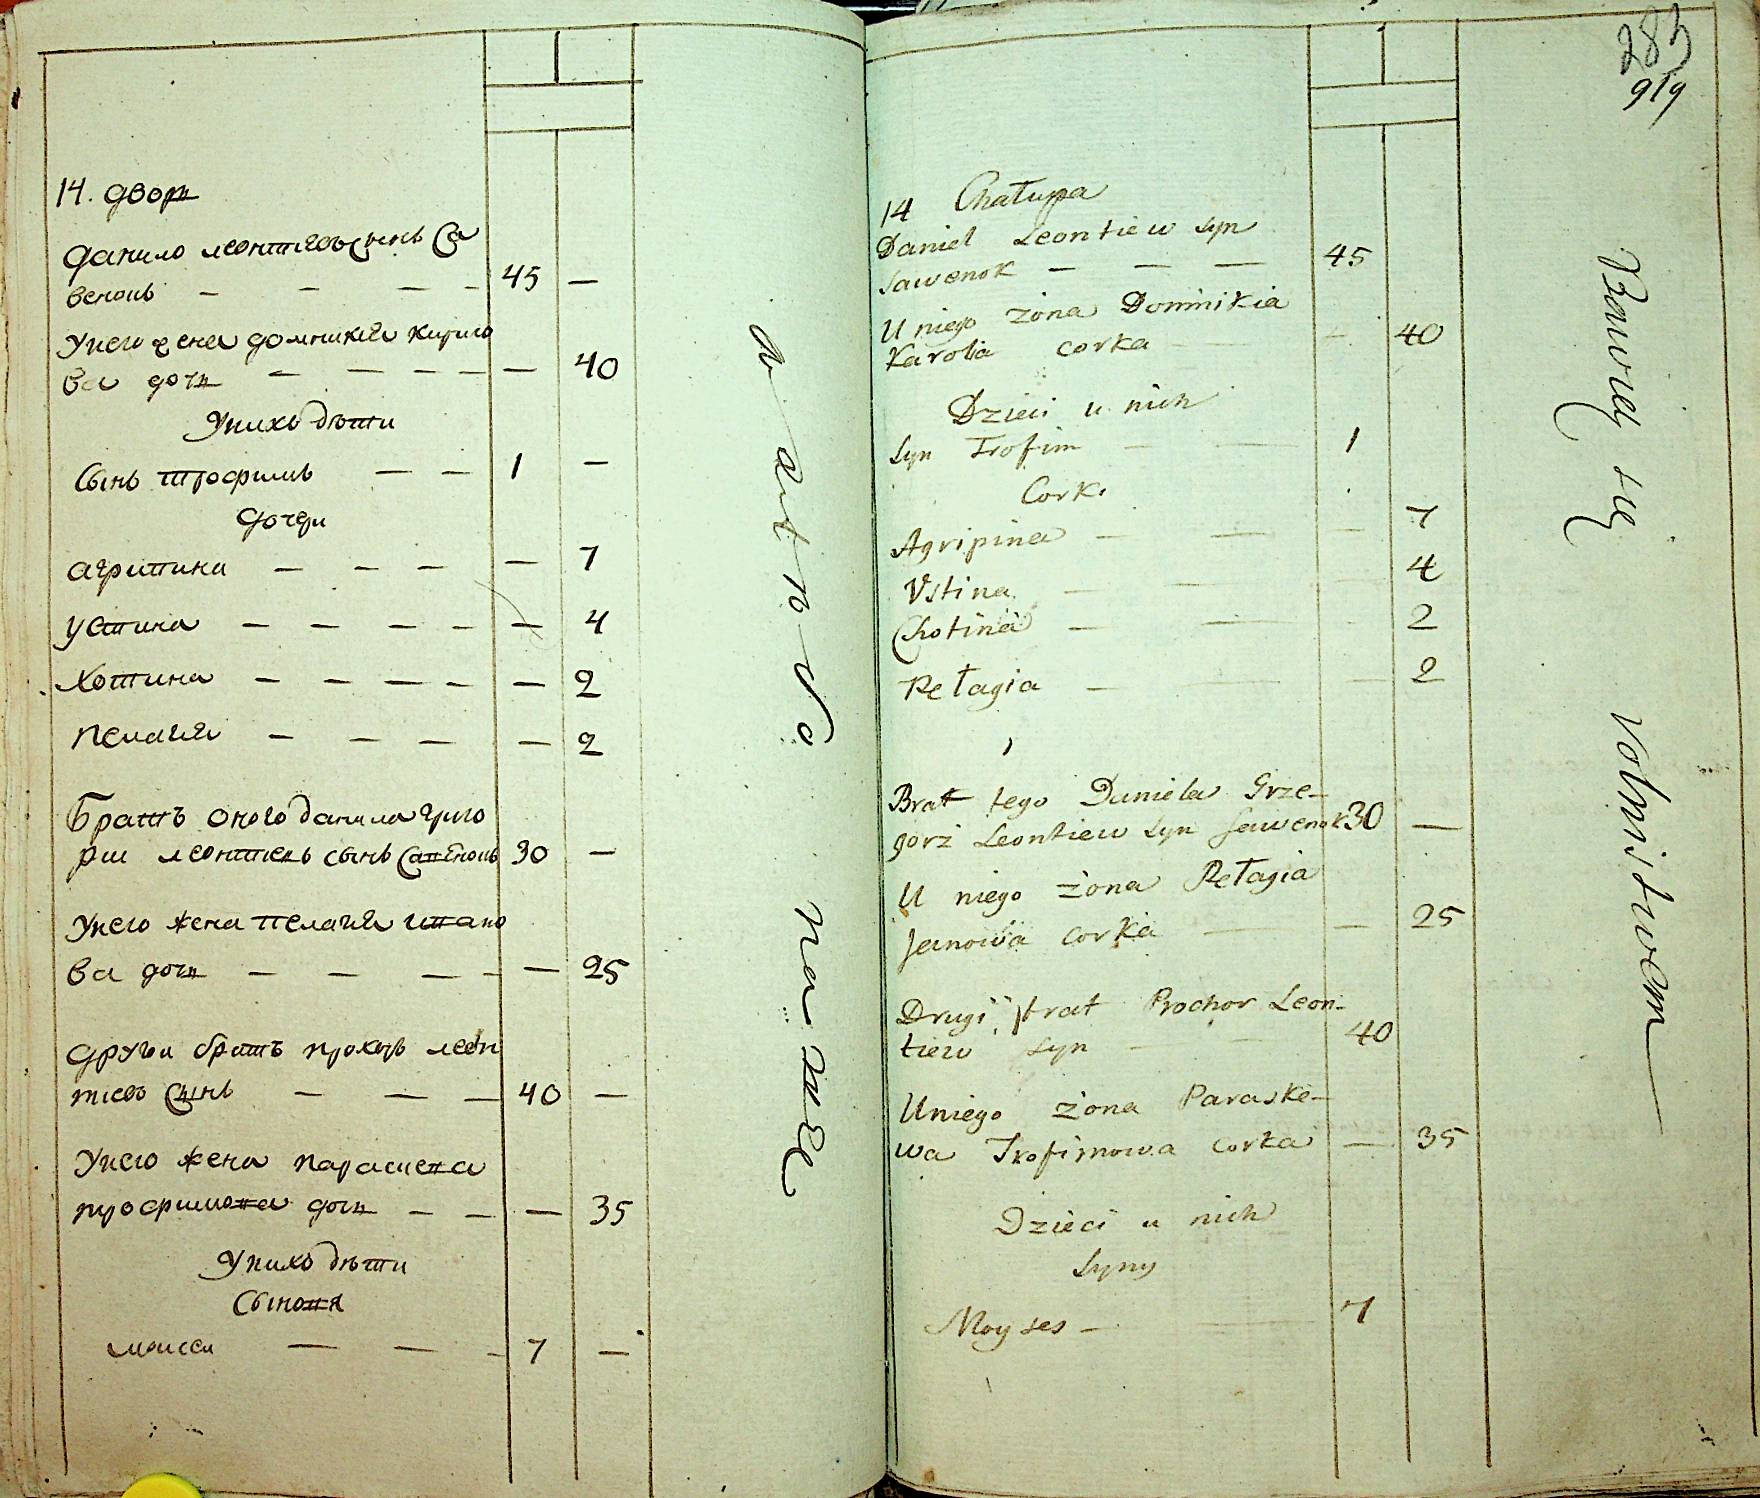 14. дворъ
данило леонтиевъ сынъ Са
венокъ — — — — 45 —
унего жена домникия кирило
ва дочь — — — — — 40
Унихъ дѣти
Сынъ трофимъ — — 1 —
дочери
агрипина — — — — 7
устина — — — — — 4
хотина — — — — — 2
пелагия — — — — 2
Братъ оного данила григо
ри леонтиевъ сынъ Савенокъ 30 —
унего жена пелагия ивано
ва дочь — — — — — 25
други братъ прохоръ леон
тиевъ Сынъ — — — 40 —
унего жена параскева
трофимова дочь — — — 35
Унихъ дѣти
Сыновя
моисеи — — — 7 —
пашне
283
919
14 Chałupa
Daniel Leontiew syn
Sawenok — — — 45
U niego żona Dominikia
Karola corka — — — 40
Dzieci u nich
Syn Trofim — — 1
Corki
Agripina — — — 7
Ustina — — — 4
Chotina — — — 2
Pełagia — — — 2
Brat tego Daniela Grze-
gorz Leontiew syn Sawenok 30 —
U niego żona Pełagia
Janowa corka — — 25
Drugi brat Prochor Leon-
tiew syn — — 40
U niego żona Paraske-
wa Trofimowa corka — 35
Dzieci u nich
Syny
Moyses — — 7
Bawią się rolnistwem